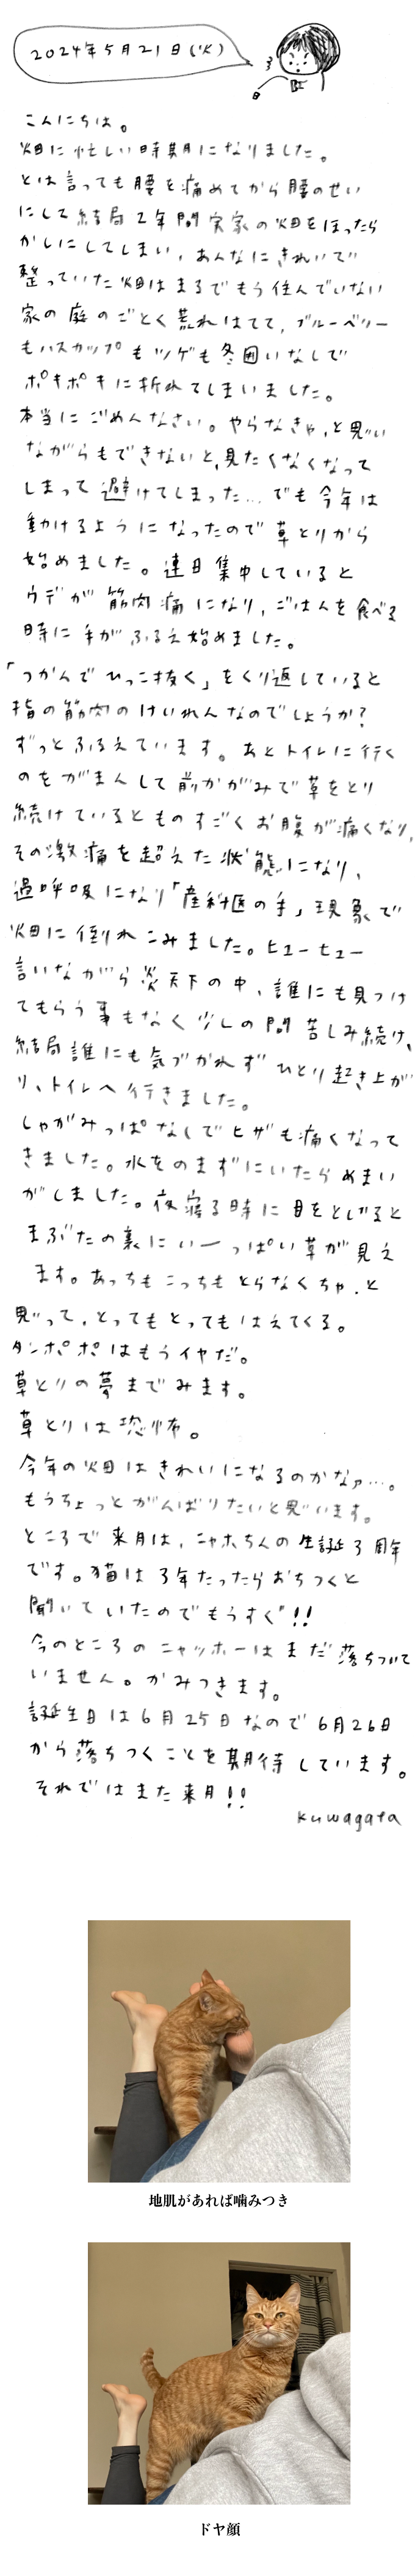 2024年5月21日(火)
こんにちは。
畑に忙しい時期になりました。
とは言っても腰を痛めてから腰のせい
にして結局2年間実家の畑をほったら
かしにしてしまい、あんなにきれいに
整っていた畑はまるでもう住んでいない
家の庭のごとく荒れはてて、ブルーベリー
もハスカップもツゲも冬囲いなしで
ポキポキに折れてしまいました。
本当にごめんなさい。やらなきゃ、と思い
ながらもできないと、見たくなくなって
しまって避けてしまった…でも今年は
動けるようになったので草とりから
始めました。連日集中していると
ウデが筋肉痛になり、ごはんを食べる
時に手がふるえ始めました。
「つかんでひっこ抜く」をくり返していると
指の筋肉のけいれんなのでしょうか?
ずっとふるえています。あとトイレに行く
のをがまんして前かがみで草をとり
続けているとものすごくお腹が痛くなり、
その激痛を超えた状態になり、
過呼吸になり「産科医の手」現象で
畑に倒れこみました。ヒューヒュー
言いながら炎天下の中、誰にも見つけ
てもらう事もなく少しの間苦しみ続け、
結局誰にも気づかれずひとり起き上が
り、トイレへ行きました。
しゃがみっぱなしでヒザも痛くなって
きました。水をのまずにいたらめまい
がしました。夜寝る時に目をとじると
まぶたの裏にいーっぱい草が見え
ます。あっちもこっちもとらなくちゃ、と
思って、とってもとってもはえてくる。
タンポポはもうイヤだ。
草とりの夢までみます。
草とりは恐怖。
今年の畑はきれいになるのかなァ…。
もうちょっとがんばりたいと思います。
ところで来月は、ニャホちんの生誕3周年
です。猫は3年たったらおちつくと
聞いていたのでもうすぐ!!
今のところのニャッホーはまだ落ちついて
いません。かみつきます。
誕生日は6月25日なので6月26日
から落ちつくことを期待しています。
それではまた来月!!
kuwagata
地肌があれば噛みつき
ドヤ顔